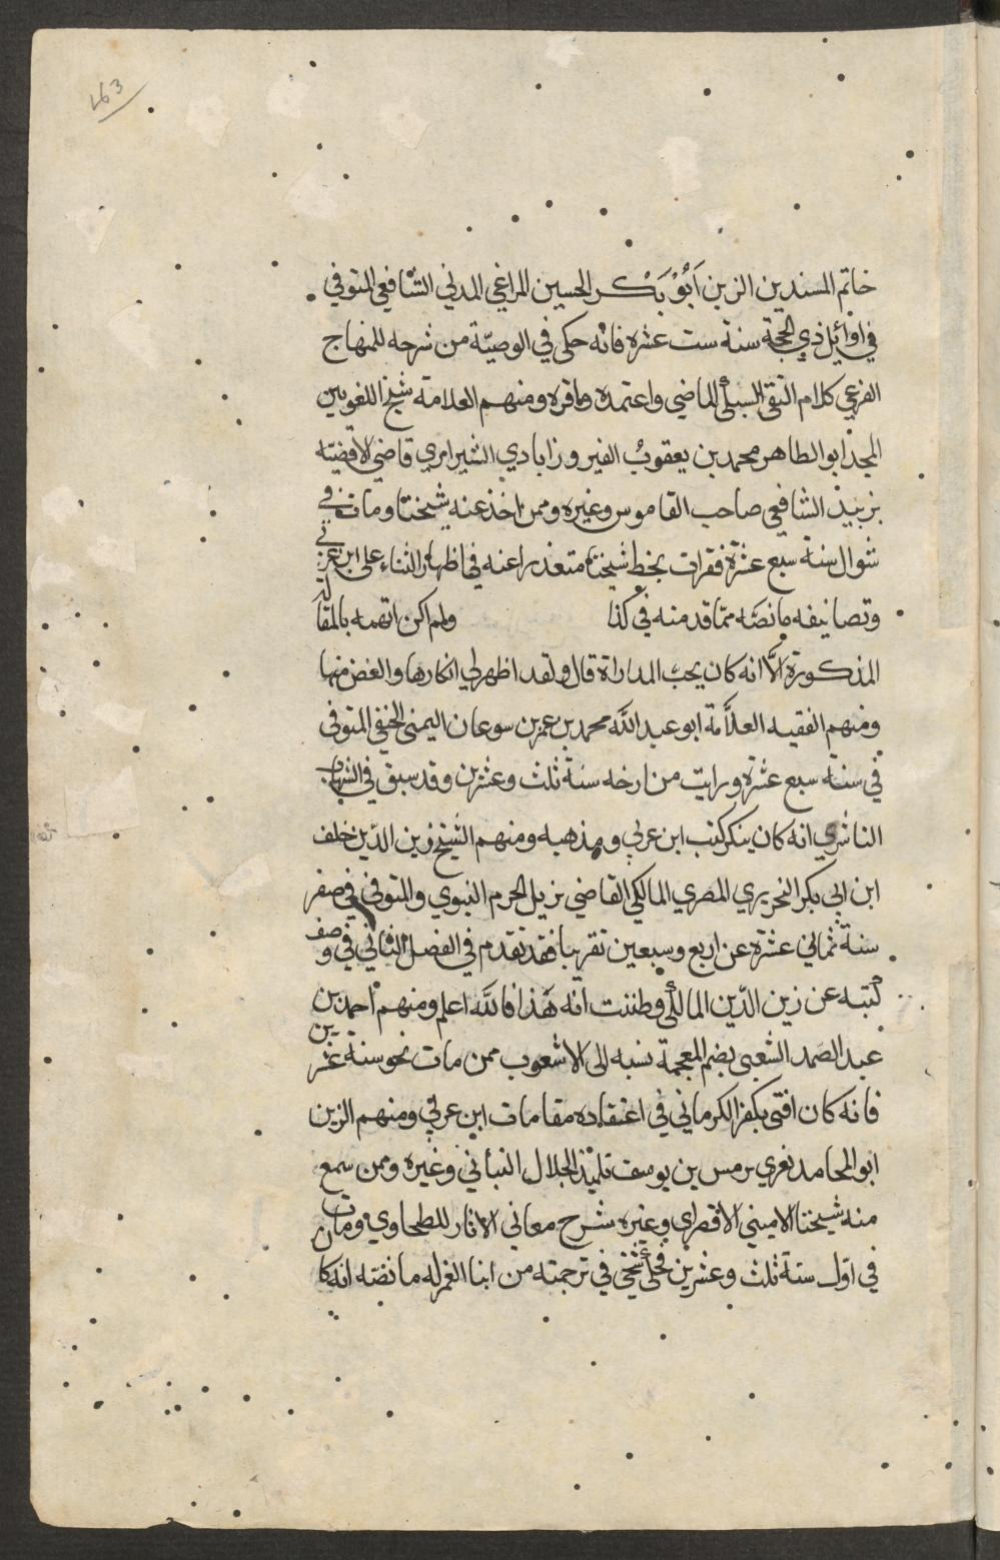 463
خاتم المسندين الزين اَبُوْ بَكْر الحسين المراغي المدني الشافعي المتوفي
في اوائل ذي الحجة سنة ست عشره فانه حكى في الوصيّة من شرحه للمنهاج
الفرعي كلام التقي السبكي الماضي واعتمده واقره ومنهم العلامة شيخ اللغويين
المجد ابو الطاهر محمد بن يعقوب الفيروزابادي الشيرازي قاضي الاقضيه
بزبيد الشافعي صاحب القاموس وغيره وممن اخذ عنه شيختا ومات في
شوال سنة سبع عشرة فقرات بخط شيخنا متعذرا عنه في اظهار الثناء على ابن عربي
وتصانيفه ما نصّه مما قد منه في كذا ولم اكن اتهمه بالمقالة
المذكورة الّا انه كان يحب المداراة قال ولقد اظهر لي انكارها والغض منها
ومنهم الفقيه العلاّمة ابو عبد اللّه محمد بن عمر بن سوعان اليمني الحنفي المتوفى
في سنة سبع عشرة ورايت من ارخه سنة ثلث وعشرين وقد سبق في الشهاب
الناشري انه كان ينكر كتب ابن عربي ومذهبه ومنهم الشيخ زين الدّين خلف
ابن ابي بكر النحريري المصري المالكي القاضي نزيل الحرم النبوي والمتوفي في صفر
سنة ثماني عشرة عن اربع وسبعين تقريبا فقد تقدم في الفصل الثاني في وصف
كتبه عن زين الدّين المالكي وظننت انه هَذا فاللّه اعلم ومنهم احمد بن
عبد الصمد الشعبي بضم المعجمة نسبه الى الاشعوب ممن مات نحو سنة عشرين
فانه كان افتى بكفر الكرماني في اعتقاده مقامات ابن عربي ومنهم الزين
ابو المحامد تغري برمس بن يوسف تلميذ الجلال التباني وغيره وممن سمع
منه شيختا الاميني الاقصراي وغيره شرح معاني الاثار للطحاوي ومات
في اوّل سنة ثلث وعشرين فحكى شيخي في ترجمته من انبا الغمر له ما نصّه انه كا